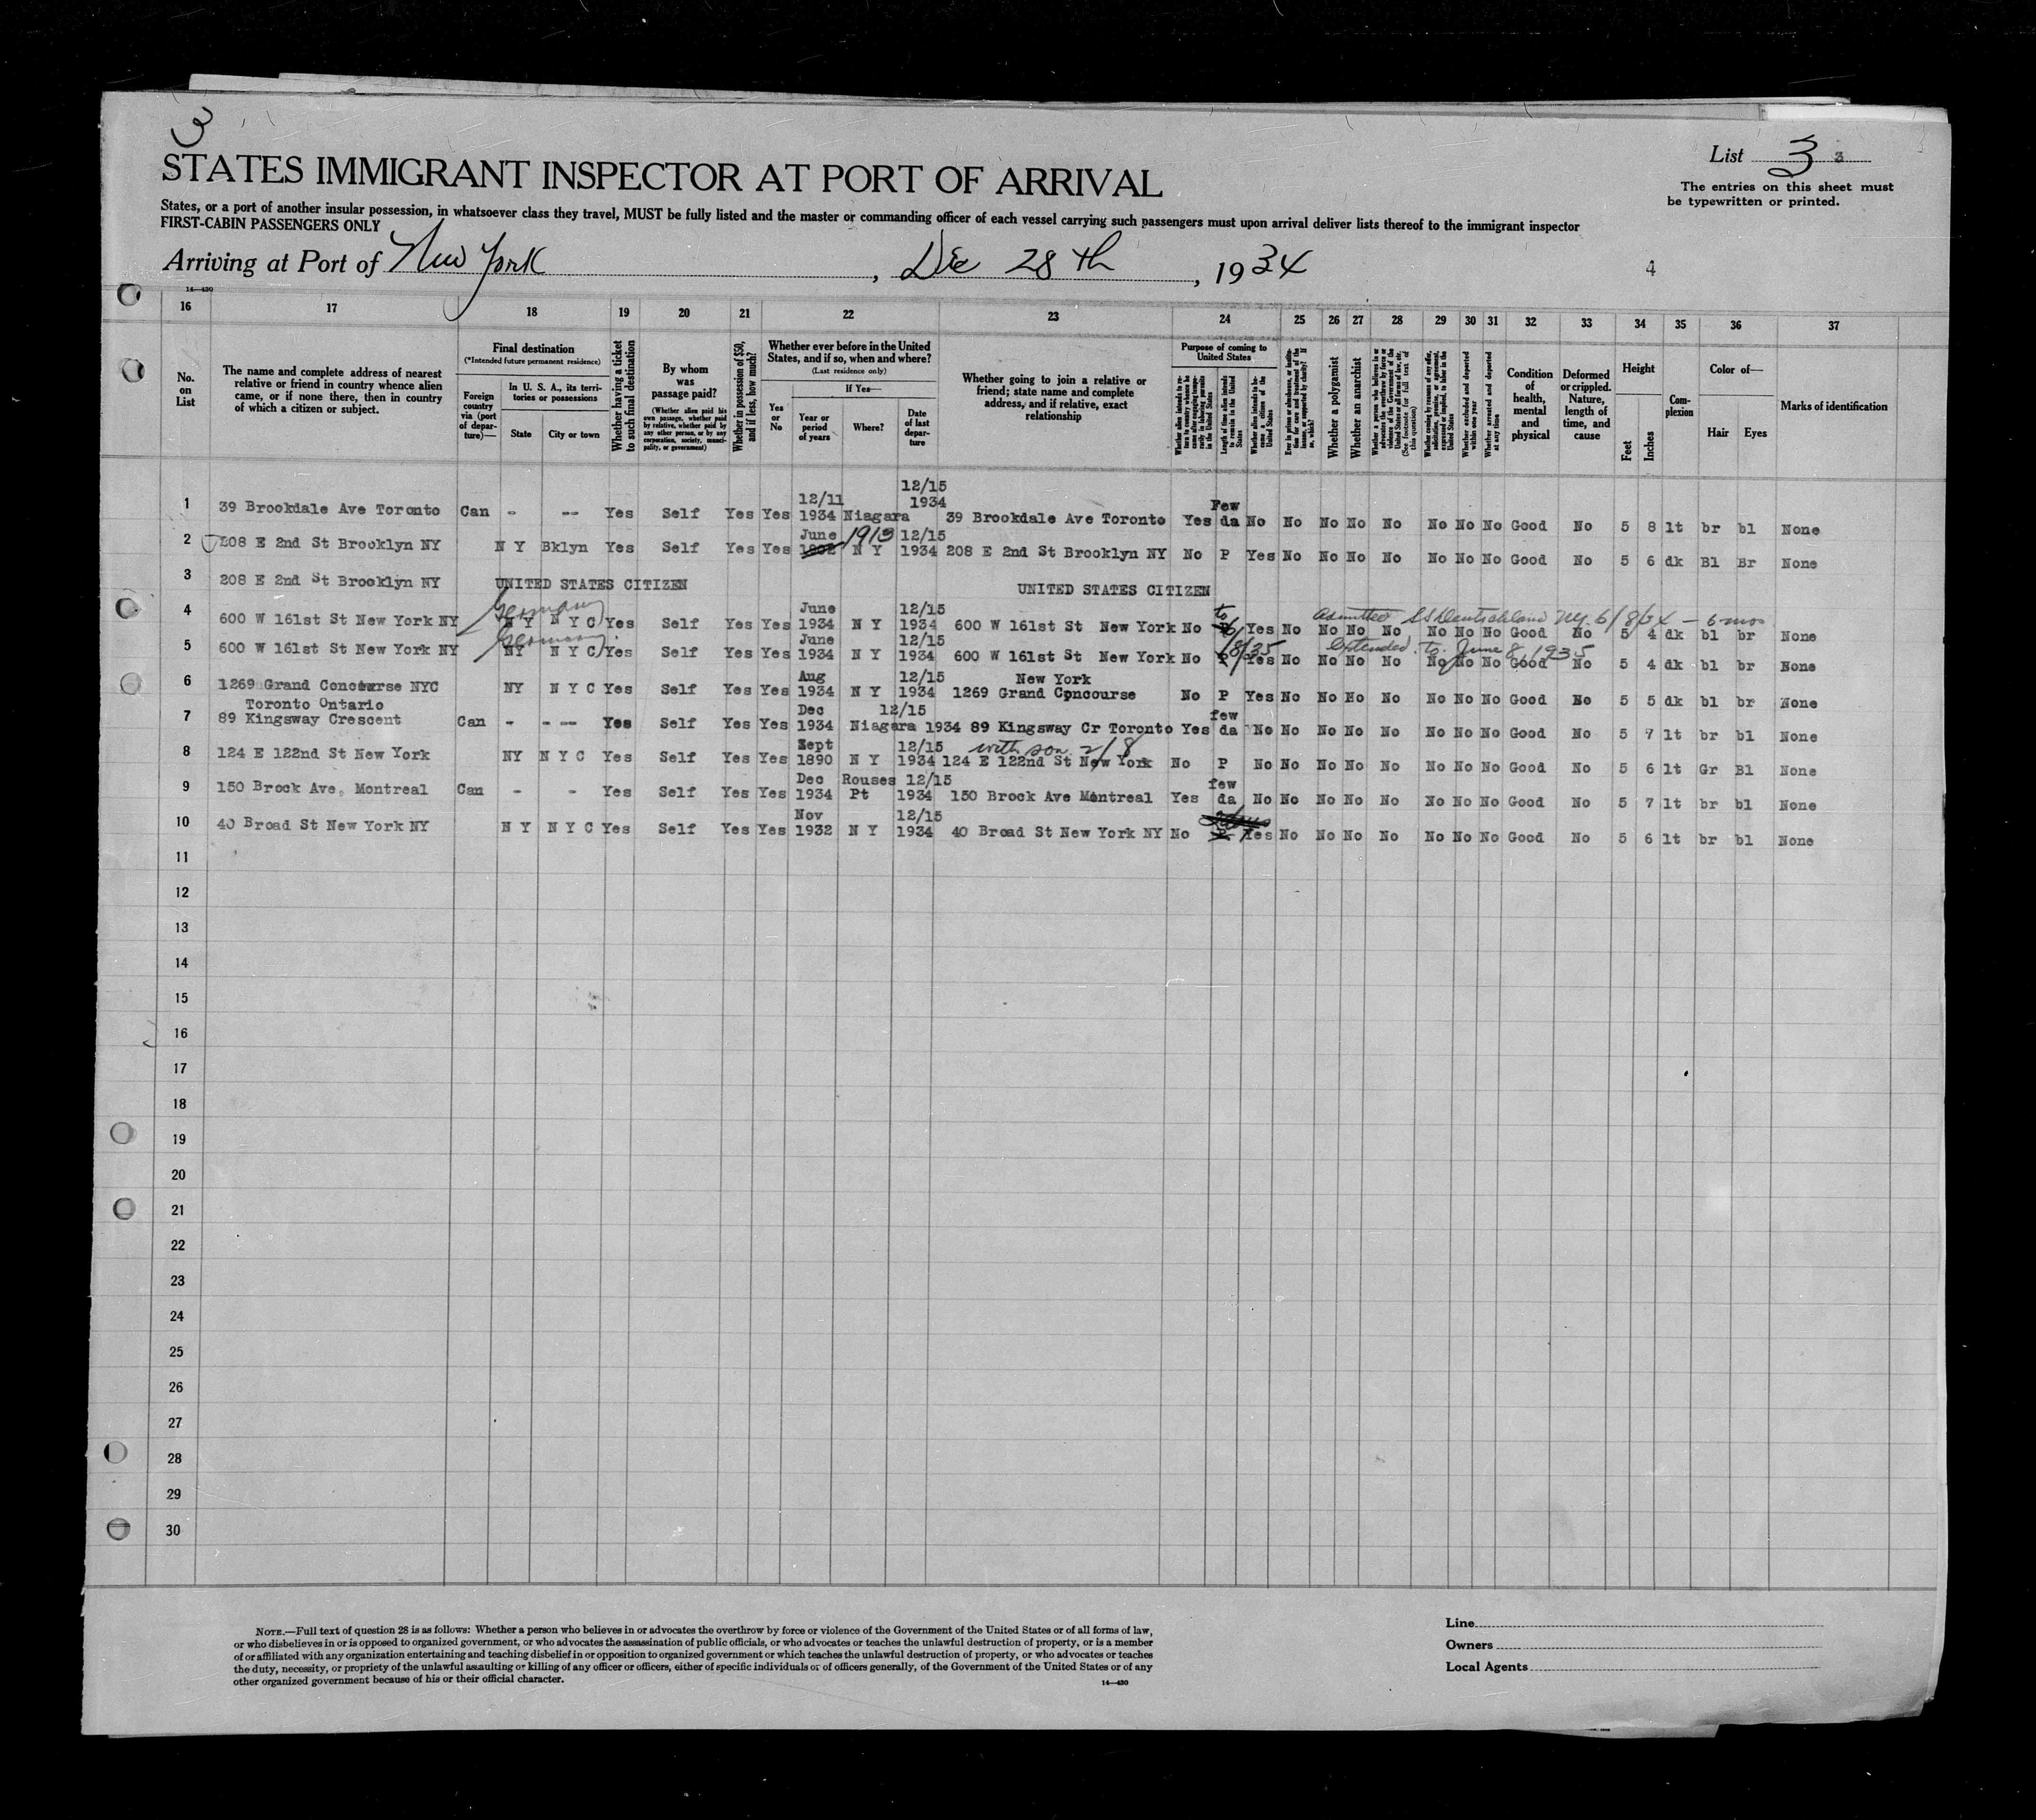 3
List 3 3
STATES IMMIGRANT INSPECTOR AT PORT OF ARRIVAL
The entries on this sheet must
be typewritten or printed.
States, or a port of another insular possession, in whatsoever class they travel, MUST be fully listed and the master or commanding officer of each vessel carrying such passengers must upon arrival deliver lists thereof to the immigrant inspector
FIRST-CABIN PASSENGERS ONLY
Arriving at Port of New York, Dec 28th, 1934
4
14—430
16 17 18 19 20 21 22 23 24 25 26 27 28 29 30 31 32 33 34 35 36 37
No. on List
The name and complete address of nearest
relative or friend in country whence alien
came, or if none there, then in country
of which a citizen or subject.
Final destination
(*Intended future permanent residence)
Foreign country via (port of departure)—
In U. S. A., its territories or possessions
State
City or town
Whether having a ticket to such final destination
By whom was passage paid?
(Whether alien paid his own passage, whether paid by relative, whether paid by any other person, or by any corporation, society, municipality, or government)
Whether in possession of $50, and if less, how much?
Whether ever before in the United States, and if so, when and where?
(Last residence only)
Yes or No
If Yes—
Year or period of years
Where?
Date of last departure
Whether going to join a relative or
friend; state name and complete
address, and if relative, exact
relationship
Purpose of coming to United States
Length of time alien intends to remain in the United States
Whether alien intends to become a citizen of the United States
Whether a polygamist
Whether an anarchist
(See footnote for full text of this question)
Whether excluded and deported within one year
Whether arrested and deported at any time
Condition of health, mental and physical
Deformed or crippled. Nature, length of time, and cause
Height
Feet
Inches
Complexion
Color of—
Hair
Eyes
Marks of identification
1 39 Brookdale Ave Toronto Can - -- Yes Self Yes Yes 12/11 1934 Niagara 12/15 1934 39 Brookdale Ave Toronto Yes Few da No No No No No No No No Good No 5 8 lt br bl None
2 208 E 2nd St Brooklyn NY N Y Bklyn Yes Self Yes Yes June 1913 N Y 12/15 1934 208 E 2nd St Brooklyn NY No P Yes No No No No No No No Good No 5 6 dk Bl Br None
3 208 E 2nd St Brooklyn NY UNITED STATES CITIZEN UNITED STATES CITIZEN
4 600 W 161st St New York NY Germany N Y N Y C Yes Self Yes Yes June 1934 N Y 12/15 1934 600 W 161st St New York No to Yes No No No No No No No Good No 5 4 dk bl br None
Admitted SS Deutschland NY. 6/8/34 — 6 mos
5 600 W 161st St New York NY Germany. NY N Y C Yes Self Yes Yes June 1934 N Y 12/15 1934 600 W 161st St New York No 6/8/35 P Yes No No No No No No No Good No 5 4 dk bl br None
Extended to June 8, 1935
6 1269 Grand Concourse NYC NY N Y C Yes Self Yes Yes Aug 1934 N Y 12/15 1934 New York 1269 Grand Concourse No P Yes No No No No No No No Good No 5 5 dk bl br None
7 Toronto Ontario 89 Kingsway Crescent Can - - -- Yes Self Yes Yes Dec 1934 Niagara 12/15 1934 89 Kingsway Cr Toronto Yes few da No No No No No No No No Good No 5 7 lt br bl None
8 124 E 122nd St New York NY N Y C Yes Self Yes Yes Sept 1890 N Y 12/15 1934 with son 2/8 124 E 122nd St New York No P No No No No No No No No Good No 5 6 lt Gr Bl None
9 150 Brock Ave, Montreal Can - - Yes Self Yes Yes Dec 1934 Rouses Pt 12/15 1934 150 Brock Ave Montreal Yes few da No No No No No No No No Good No 5 7 lt br bl None
10 40 Broad St New York NY N Y N Y C Yes Self Yes Yes Nov 1932 N Y 12/15 1934 40 Broad St New York NY No P Yes No No No No No No No Good No 5 6 lt br bl None
11
12
13
14
15
16
17
18
19
20
21
22
23
24
25
26
27
28
29
30
NOTE.—Full text of question 28 is as follows: Whether a person who believes in or advocates the overthrow by force or violence of the Government of the United States or of all forms of law,
or who disbelieves in or is opposed to organized government, or who advocates the assassination of public officials, or who advocates or teaches the unlawful destruction of property, or is a member
of or affiliated with any organization entertaining and teaching disbelief in or opposition to organized government or which teaches the unlawful destruction of property, or who advocates or teaches
the duty, necessity, or propriety of the unlawful assaulting or killing of any officer or officers, either of specific individuals or of officers generally, of the Government of the United States or of any
other organized government because of his or their official character.
14—430
Line
Owners
Local Agents